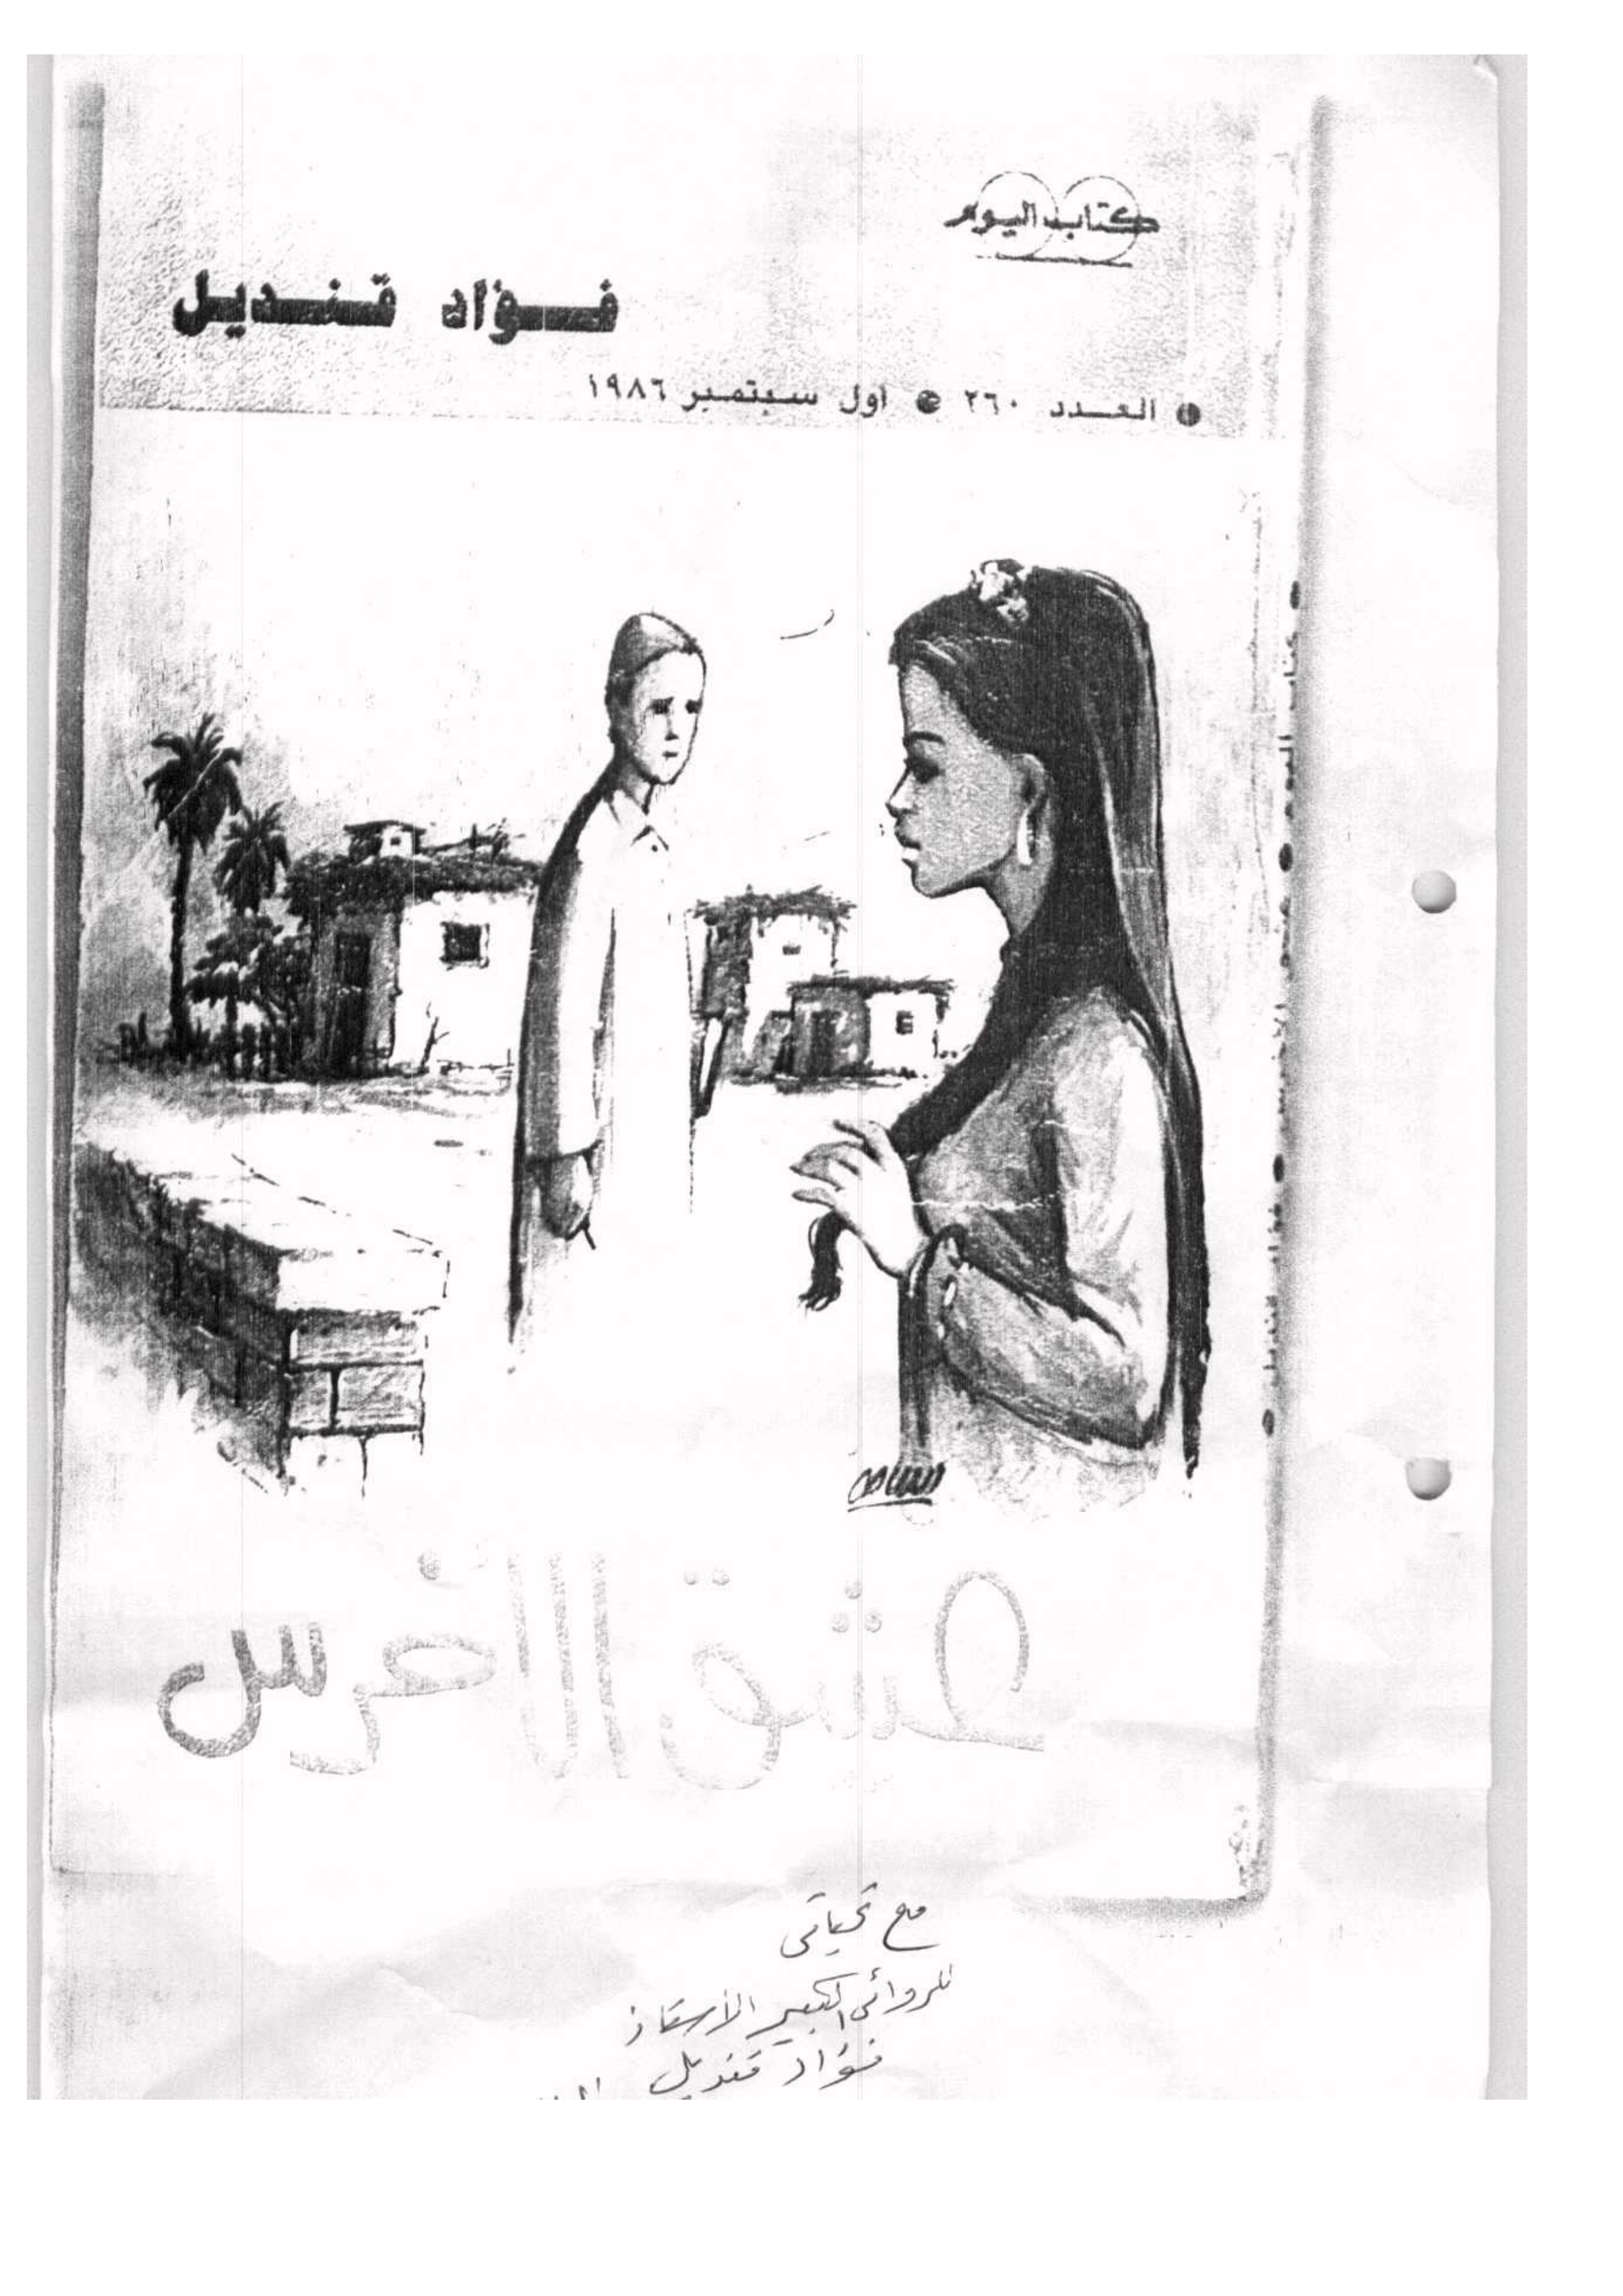 كتاب اليوم
فؤاد قنديل
العدد ٢٦٠ • أول سبتمبر ١٩٨٦
عشق الأخرس
مع تحياتى
للروائى الكبير الأستاذ
فؤاد قنديل